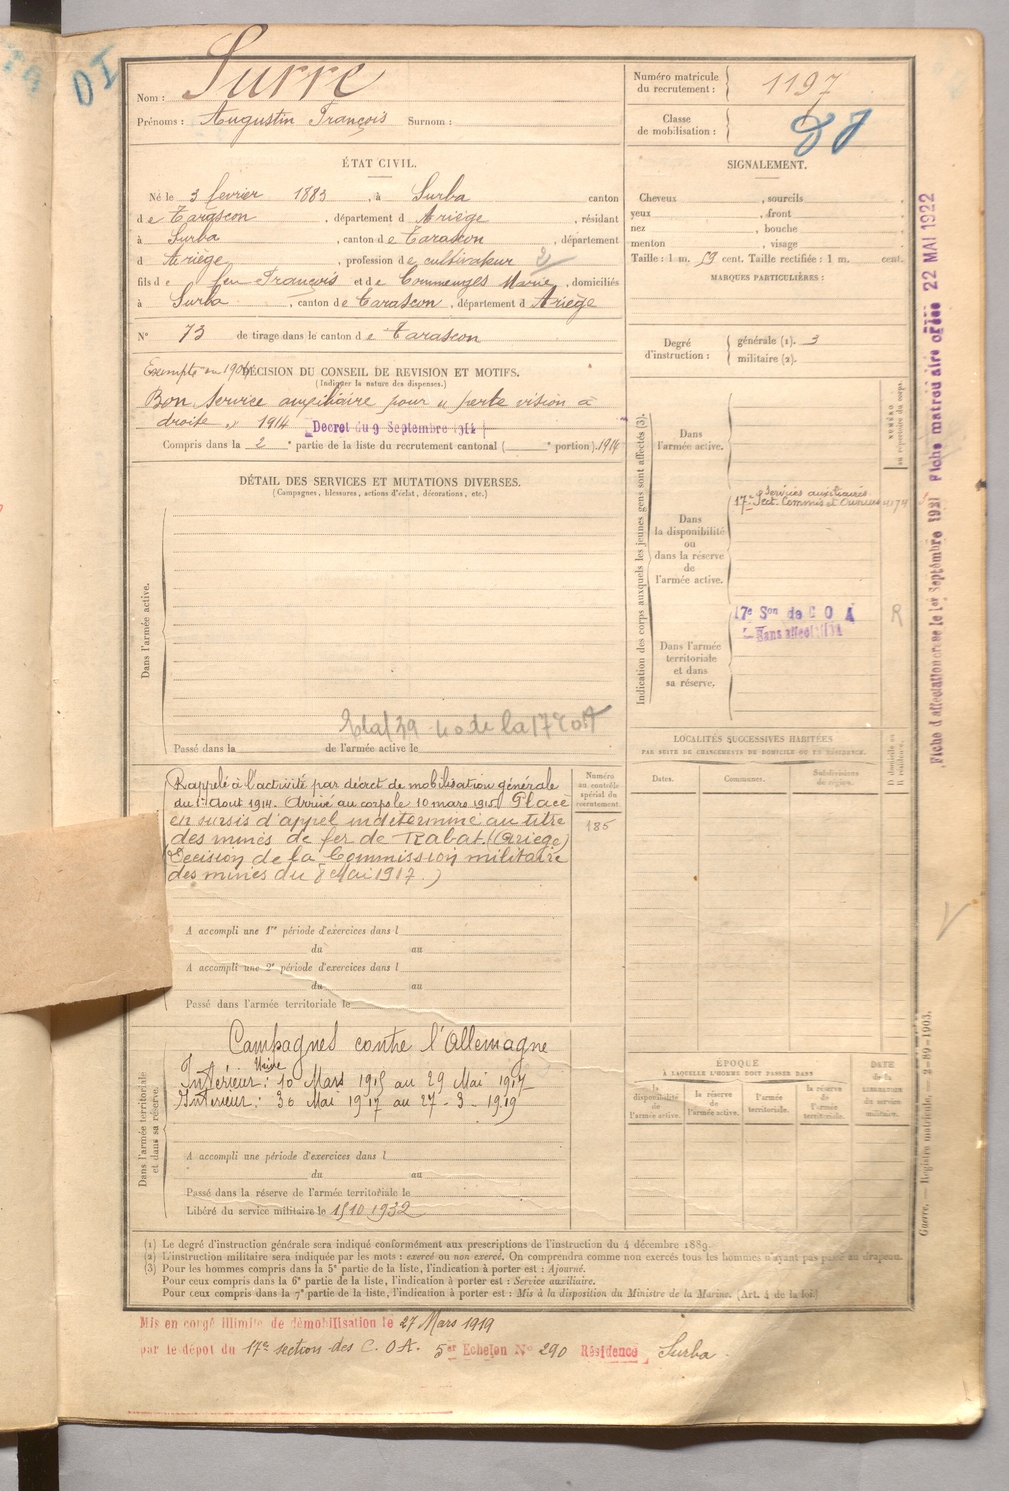 DI
Nom : Surre
Prénoms : Augustin François Surnom :
Numéro matricule du recrutement : 1197
Classe de mobilisation :
ÉTAT CIVIL.
Né le 3 fevrier 1883, à Surba canton
de Tarascon, département d Ariège, résidant
à Surba, canton de Tarascon, département
d Ariège, profession de cultivateur
fils de feu François et de Commenges Marie, domiciliés
à Surba, canton de Tarascon, département d Ariège
N° 73 de tirage dans le canton de Tarascon
Exempté en 1904
DÉCISION DU CONSEIL DE REVISION ET MOTIFS.
(Indiquer la nature des dispenses.)
Bon Service auxiliaire pour perte vision à
droite 1914 Decret du 9 Septembre 1914
Compris dans la 2e partie de la liste du recrutement cantonal ( e portion). 1914
SIGNALEMENT.
Cheveux , sourcils ,
yeux , front ,
nez , bouche ,
menton , visage .
Taille : 1 m. 59 cent. Taille rectifiée : 1 m. cent.
MARQUES PARTICULIÈRES :
Degré d'instruction : générale (1). 3
militaire (2).
DÉTAIL DES SERVICES ET MUTATIONS DIVERSES.
(Campagnes, blessures, actions d'éclat, décorations, etc.)
Dans l'armée active.
Passé dans la de l'armée active le
Indication des corps auxquels les jeunes gens sont affectés (3).
NUMÉRO au répertoire du corps.
Dans l'armée active.
Dans la disponibilité ou dans la réserve de l'armée active.
Services auxiliaires
17e Sect. Commis et Ouvriers
Dans l'armée territoriale et dans sa réserve.
17e Son de C O A
Sans affectation
R
Rappelé à l'activité par décret de mobilisation générale
du 1er Août 1914. Arrivé au corps le 10 mars 1915. Placé
en sursis d'appel indéterminé au titre
des mines de fer de Rabat (Ariège)
(Décision de la Commission militaire
des mines du 8 Mai 1917.)
Numéro au contrôle spécial du recrutement.
185
A accompli une 1re période d'exercices dans l
du au
A accompli une 2e période d'exercices dans l
du au
Passé dans l'armée territoriale le
LOCALITÉS SUCCESSIVES HABITÉES
PAR SUITE DE CHANGEMENTS DE DOMICILE OU DE RÉSIDENCE.
Dates.
Communes.
Subdivisions de région.
D domicile ou R résidence.
Dans l'armée territoriale et dans sa réserve.
Campagnes contre l'Allemagne
Intérieur : 10 Mars 1915 au 29 Mai 1917
Usine
Interieur : 30 Mai 1917 au 27-3-1919
A accompli une période d'exercices dans l
du au
Passé dans la réserve de l'armée territoriale le
Libéré du service militaire le 15 10 1932
ÉPOQUE
À LAQUELLE L'HOMME DOIT PASSER DANS
la disponibilité de l'armée active.
la réserve de l'armée active.
l'armée territoriale.
la réserve de l'armée territoriale.
DATE de la LIBÉRATION du service militaire.
(1) Le degré d'instruction générale sera indiqué conformément aux prescriptions de l'instruction du 4 décembre 1889.
(2) L'instruction militaire sera indiquée par les mots : exercé ou non exercé. On comprendra comme non exercés tous les hommes n'ayant pas passé au drapeau.
(3) Pour les hommes compris dans la 5e partie de la liste, l'indication à porter est : Ajourné.
Pour ceux compris dans la 6e partie de la liste, l'indication à porter est : Service auxiliaire.
Pour ceux compris dans la 7e partie de la liste, l'indication à porter est : Mis à la disposition du Ministre de la Marine. (Art. 4 de la loi)
Mis en congé illimité de démobilisation le 27 Mars 1919
par le dépot du 17e section des C. O A. 5er Echelon N° 290 Résidence Surba.
Fiche d'affectation créée le 1er Septembre 1921 Fiche matriculaire créée 22 MAI 1922